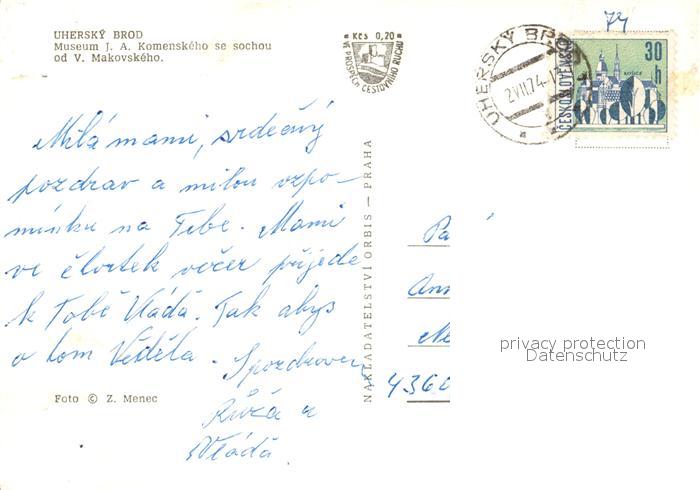 UHERSKÝ BROD
Museum J. A. Komenského se sochou
od V. Makovského.
Kčs 0,20
VE PROSPĚCH CESTOVNÍHO RUCHU
74
UHERSKÝ BROD
2.VII.74
30
h
KOŠICE
ČESKOSLOVENSKO
Milá mami, srdečný
pozdrav a milou vzpo-
mínku na Tebe. Mami
ve čtvrtek večer přijede
k Tobě Vláďa. Tak abys
o tom věděla. S pozdravem
Růža a
Vláďa.
NAKLADATELSTVÍ ORBIS — PRAHA
Pa
Ann
Ne
4360
privacy protection
Datenschutz
Foto © Z. Menec